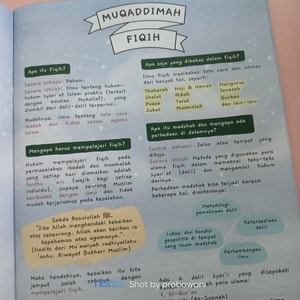 MUQADDIMAH
FIQIH
Apa itu Fiqih?
Secara bahasa: Paham.
Secara istilah: Ilmu tentang hukum-
hukum syari'at Islam praktis (terkait
dengan amalan Mukallaf), yang
diambil dari dalil-dalil terperinci.
Fiqih itu ilmu tentang tata cara
ibadah dan hidup sesuai agama
Islam.
Mengapa harus mempelajari fiqih?
Hukum mempelajari fiqih pada
permasalahan ibadah dan muamalah
yang setiap hari diamalkan adalah
fardhu 'ain (wajib bagi setiap
individu), supaya seorang Muslim
beribadah dengan ilmu dan tidak
mudah terjerumus pada kesalahan.
Sabda Rasulullah ﷺ,
"Jika Allah menghendaki kebaikan
atas seseorang, Allah akan berikan ia
kepahaman atas agamanya."
(Hadits dari Mu'awiyah radhiyallahu
'anhu. Riwayat Bukhari Muslim)
Maka hendaknya, kebaikan itu kita
jemput salah satunya dengan
mempelajari fiqih.
Apa saja yang dibahas dalam fiqih?
Ilmu fiqih membahas tata cara dan aturan
dari banyak hal, seperti:
Thaharah Haji & Umrah Mengurus
Shalat Nikah Jenazah
Puasa Talak Qurban
Zakat Muamalah dan lain-lain
Apa itu madzhab dan mengapa ada
perbedaan di dalamnya?
Secara bahasa: Jalan atau tempat yang
dilalui.
Secara istilah: Metode yang digunakan para
ulama fiqih dalam memahami teks-teks
syari'at (dalil) dan mengambil hukum
darinya.
Perbedaan madzhab bisa terjadi karena
beberapa hal, diantaranya:
Metodologi
pemaknaan dalil
Ketersediaan
dalil
Lokasi dan kondisi
geopolitik di tempat
sang imam madzhab
Perkembangan
ilmu
Ada 4 dalil syar'i yang disepakati
para ulama:
1. Al-Qur'an
Shot by probowani